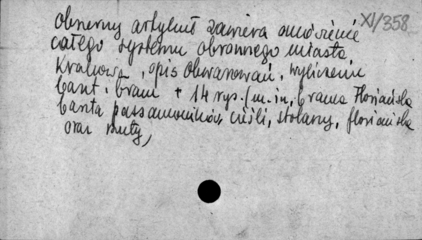 XI/358
obszerny artykuł zawiera omówienie
całego systemu obronnego miasta
Krakowa, opis obwarowań, wyliczenie
baszt i bram + 14 rys./m.in. brama Floriańska
baszta pasamoników, cieśli, stolarzy, floriańska
oraz mury,